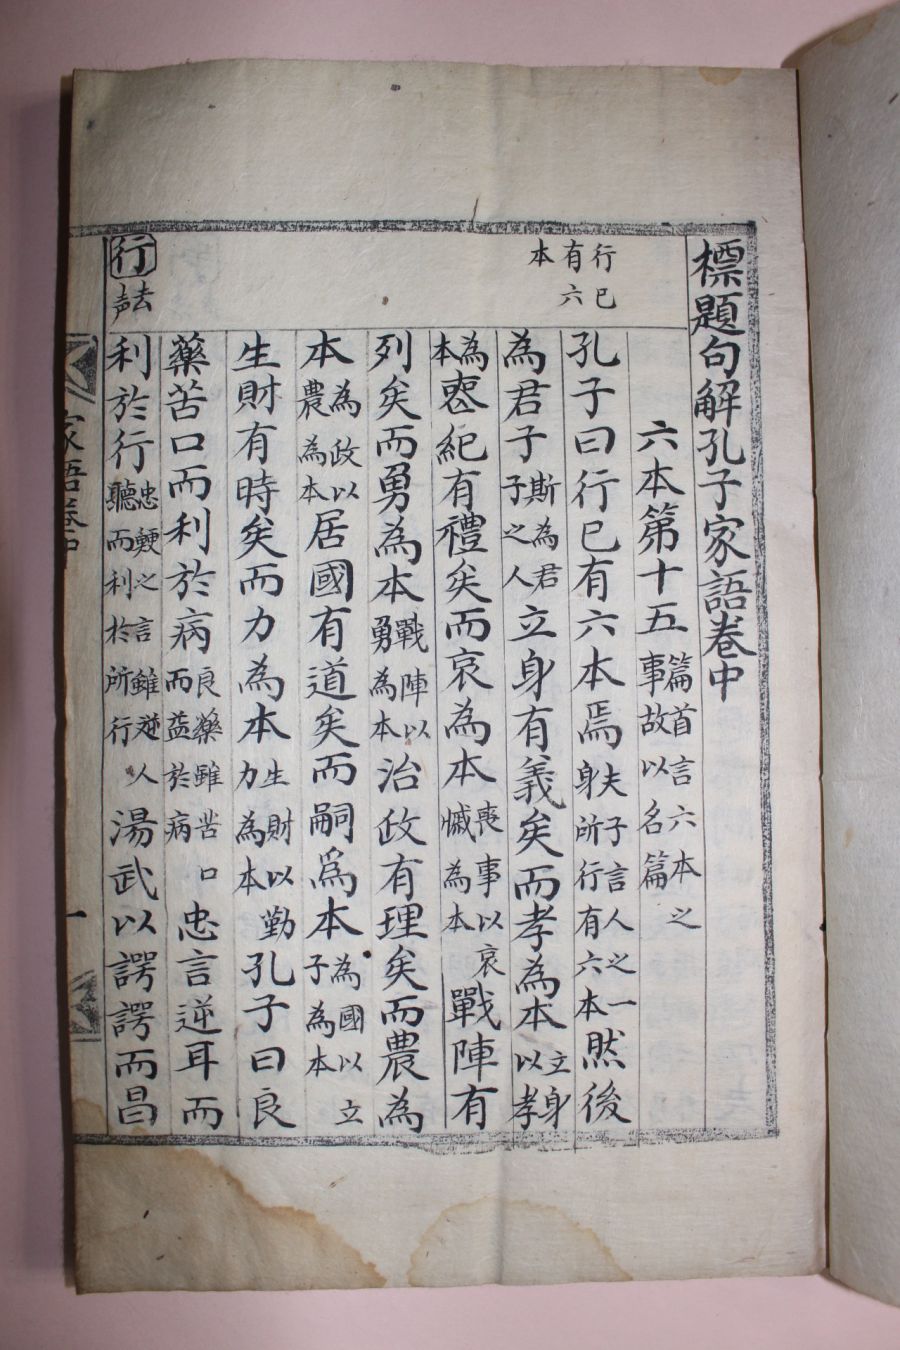 標題句解孔子家語卷中
六本第十五篇首言六本之事故以名篇
行己
有六
本
孔子曰行己有六本焉夫子言人之一身所行有六本然後
為君子斯為君子之人立身有義矣而孝為本立身以孝
為本喪紀有禮矣而哀為本喪事以哀慽為本戰陣有
列矣而勇為本戰陣以勇為本治政有理矣而農為
本為政以農為本居國有道矣而嗣為本為國以立子為本
生財有時矣而力為本生財以勤力為本孔子曰良
藥苦口而利於病良藥雖苦口而益於病忠言逆耳而
行去聲
利於行忠鯁之言雖逆人聽而利於所行湯武以諤諤而昌
家語卷中
一